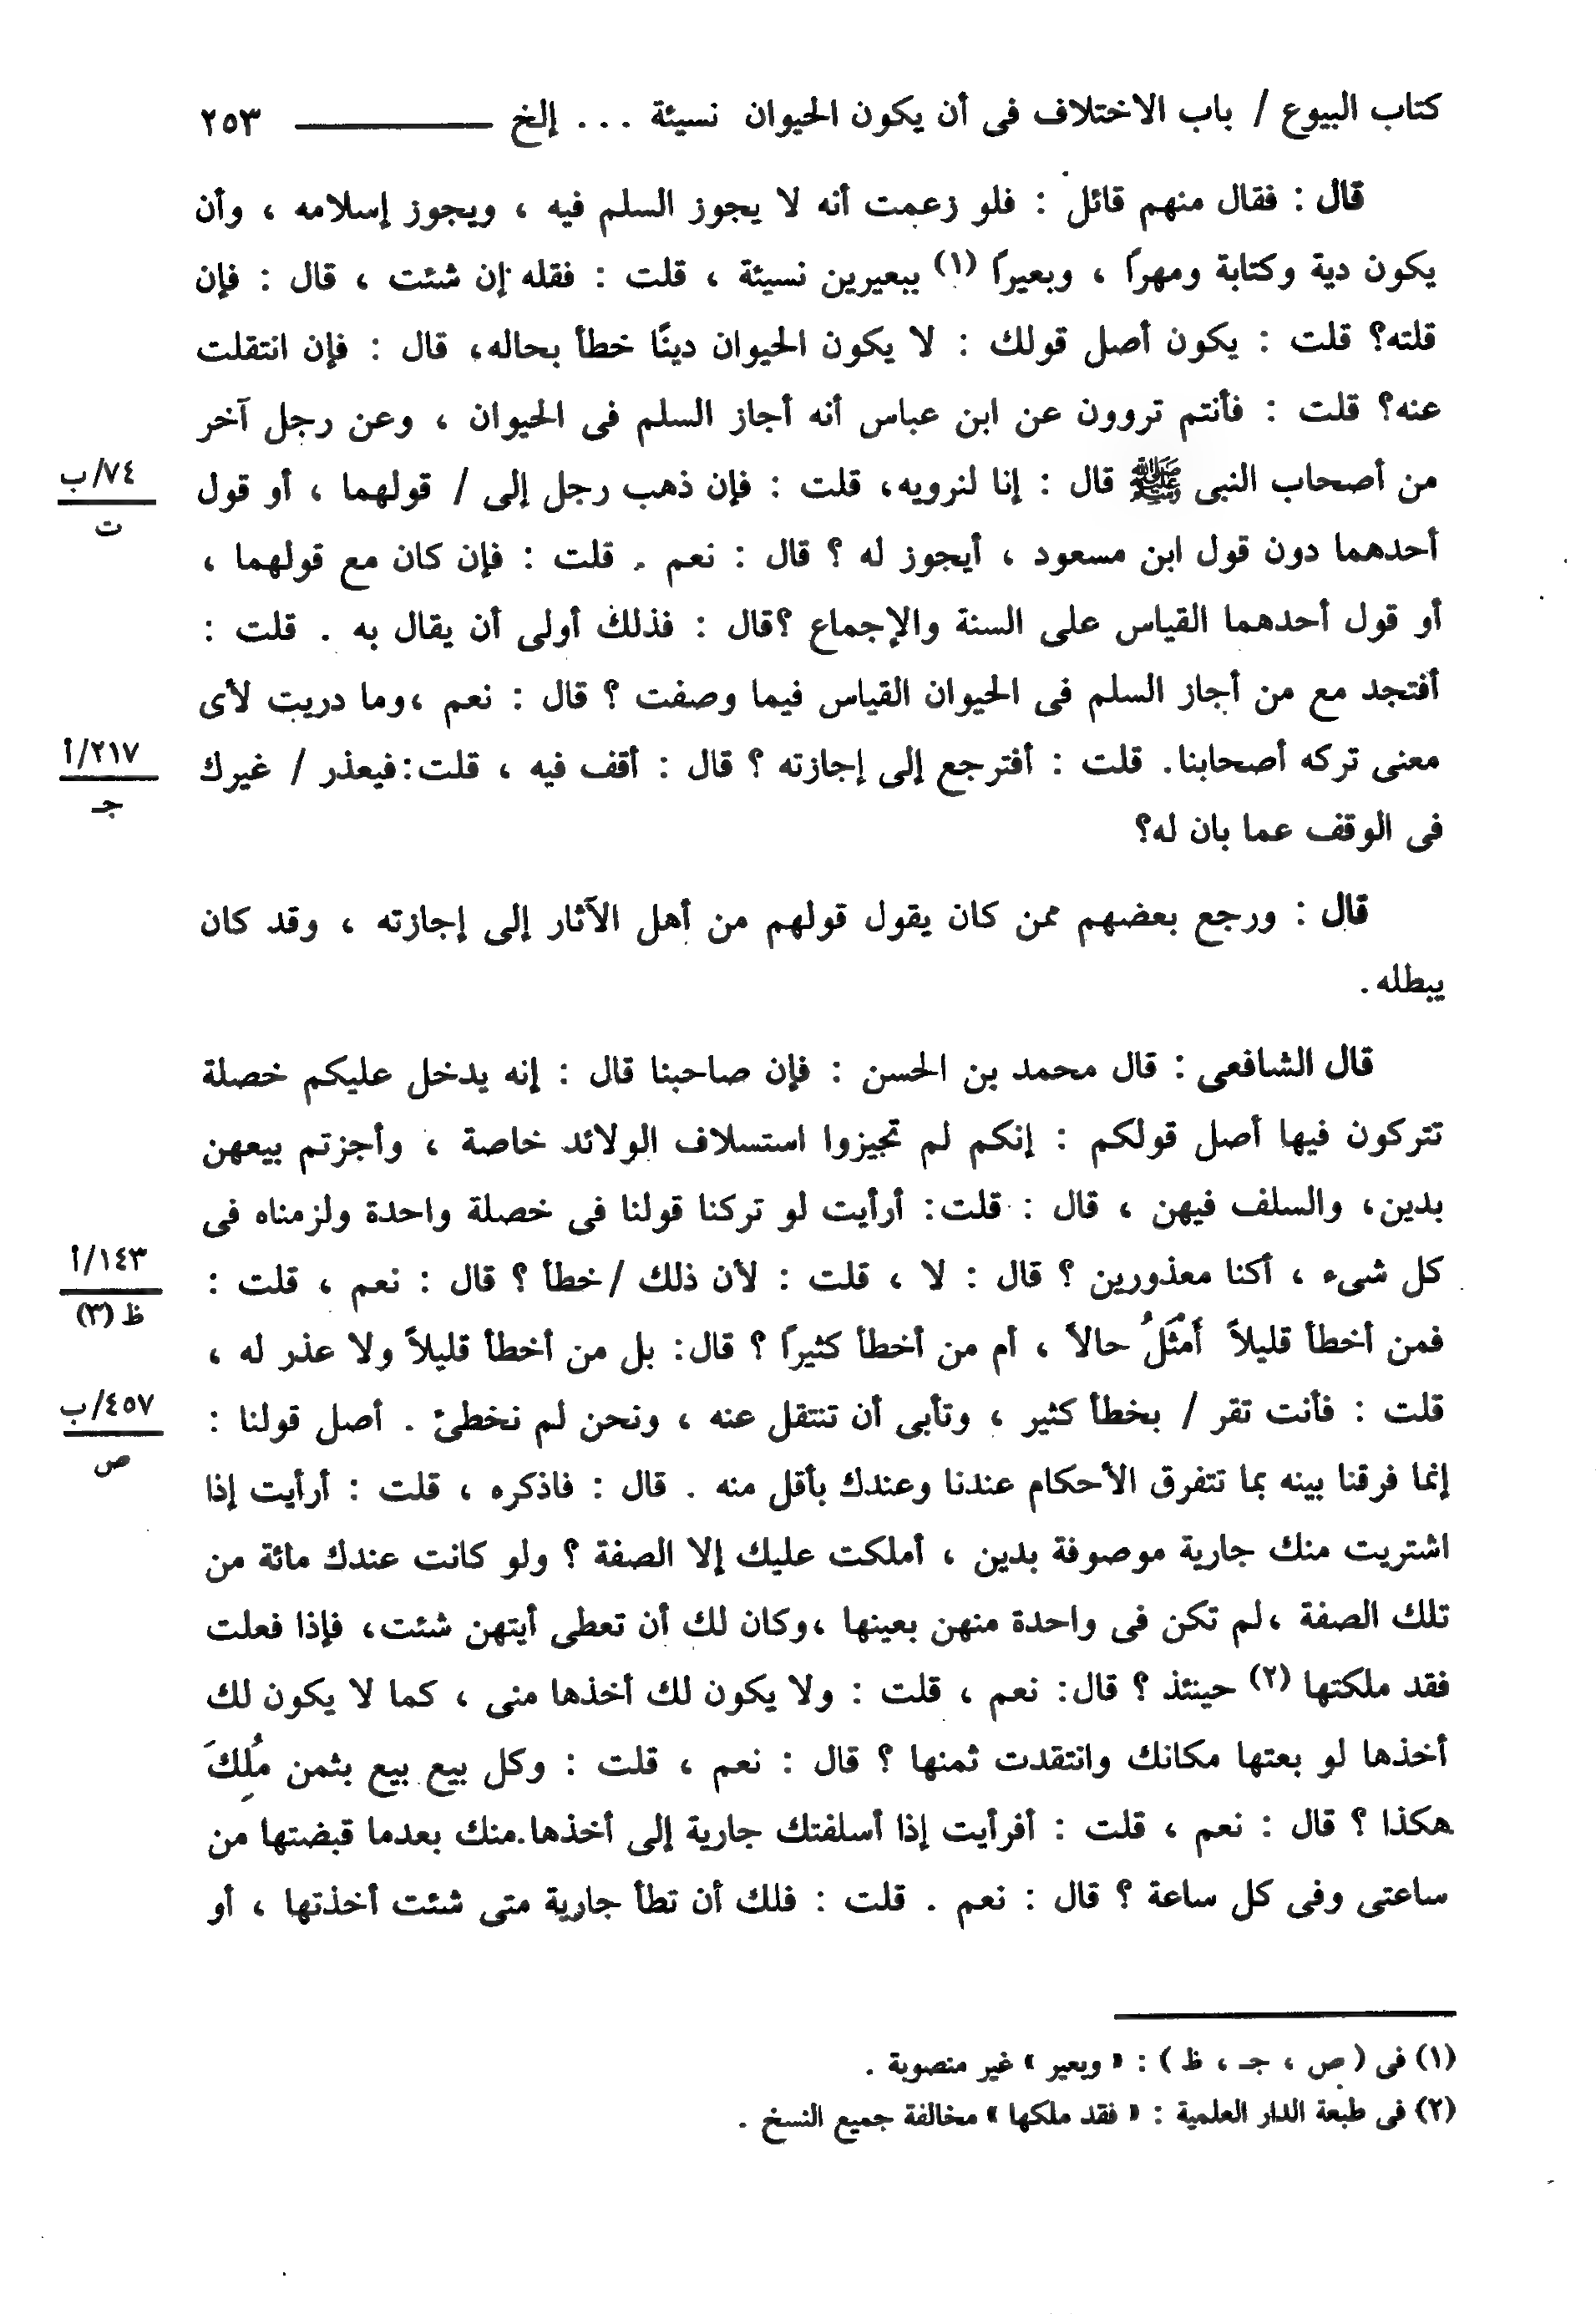 كتاب البيوع / باب الاختلاف فى أن يكون الحيوان نسيئة ... إلخ ــــــــ ٢٥٣
قال : فقال منهم قائل : فلو زعمت أنه لا يجوز السلم فيه ، ويجوز إسلامه ، وأن
يكون دية وكتابة ومهراً ، وبعيراً (١) ببعيرين نسيئة ، قلت : فقله إن شئت ، قال : فإن
قلته؟ قلت : يكون أصل قولك : لا يكون الحيوان دينًا خطأ بحاله، قال : فإن انتقلت
عنه؟ قلت : فأنتم تروون عن ابن عباس أنه أجاز السلم فى الحيوان ، وعن رجل آخر
من أصحاب النبى ﷺ قال : إنا لنرويه، قلت : فإن ذهب رجل إلى / قولهما ، أو قول
٧٤/ب
ت
أحدهما دون قول ابن مسعود ، أيجوز له ؟ قال : نعم . قلت : فإن كان مع قولهما ،
أو قول أحدهما القياس على السنة والإجماع ؟قال : فذلك أولى أن يقال به . قلت :
أفتجد مع من أجاز السلم فى الحيوان القياس فيما وصفت ؟ قال : نعم ،وما دريت لأى
معنى تركه أصحابنا. قلت : أفترجع إلى إجازته ؟ قال : أقف فيه ، قلت:فيعذر / غيرك
٢١٧/أ
جـ
فى الوقف عما بان له؟
قال : ورجع بعضهم ممن كان يقول قولهم من أهل الآثار إلى إجازته ، وقد كان
يبطله .
قال الشافعى : قال محمد بن الحسن : فإن صاحبنا قال : إنه يدخل عليكم خصلة
تتركون فيها أصل قولكم : إنكم لم تجيزوا استسلاف الولائد خاصة ، وأجزتم بيعهن
بدين، والسلف فيهن ، قال : قلت: أرأيت لو تركنا قولنا فى خصلة واحدة ولزمناه فى
كل شىء ، أكنا معذورين ؟ قال : لا ، قلت : لأن ذلك /خطأ ؟ قال : نعم ، قلت :
١٤٣/أ
ظ (٣)
فمن أخطأ قليلاً أَمْثَلُ حالاً ، أم من أخطأ كثيراً ؟ قال: بل من أخطأ قليلاً ولا عذر له ،
قلت : فأنت تقر / بخطأ كثير ، وتأبى أن تنتقل عنه ، ونحن لم نخطئ . أصل قولنا :
٤٥٧/ب
ص
إنما فرقنا بينه بما تتفرق الأحكام عندنا وعندك بأقل منه . قال : فاذكره ، قلت : أرأيت إذا
اشتريت منك جارية موصوفة بدين ، أملكت عليك إلا الصفة ؟ ولو كانت عندك مائة من
تلك الصفة ،لم تكن فى واحدة منهن بعينها ،وكان لك أن تعطى أيتهن شئت، فإذا فعلت
فقد ملكتها (٢) حينئذ ؟ قال: نعم ، قلت : ولا يكون لك أخذها منى ، كما لا يكون لك
أخذها لو بعتها مكانك وانتقدت ثمنها ؟ قال : نعم ، قلت : وكل بيع بيع بثمن مُلِكَ
هكذا ؟ قال : نعم ، قلت : أفرأيت إذا أسلفتك جارية إلى أخذها.منك بعدما قبضتها من
ساعتى وفى كل ساعة ؟ قال : نعم . قلت : فلك أن تطأ جارية متى شئت أخذتها ، أو
(١) فى ( ص ، جـ ، ظ ) : « وبعير » غير منصوبة .
(٢) فى طبعة الدار العلمية : « فقد ملكها » مخالفة جميع النسخ .